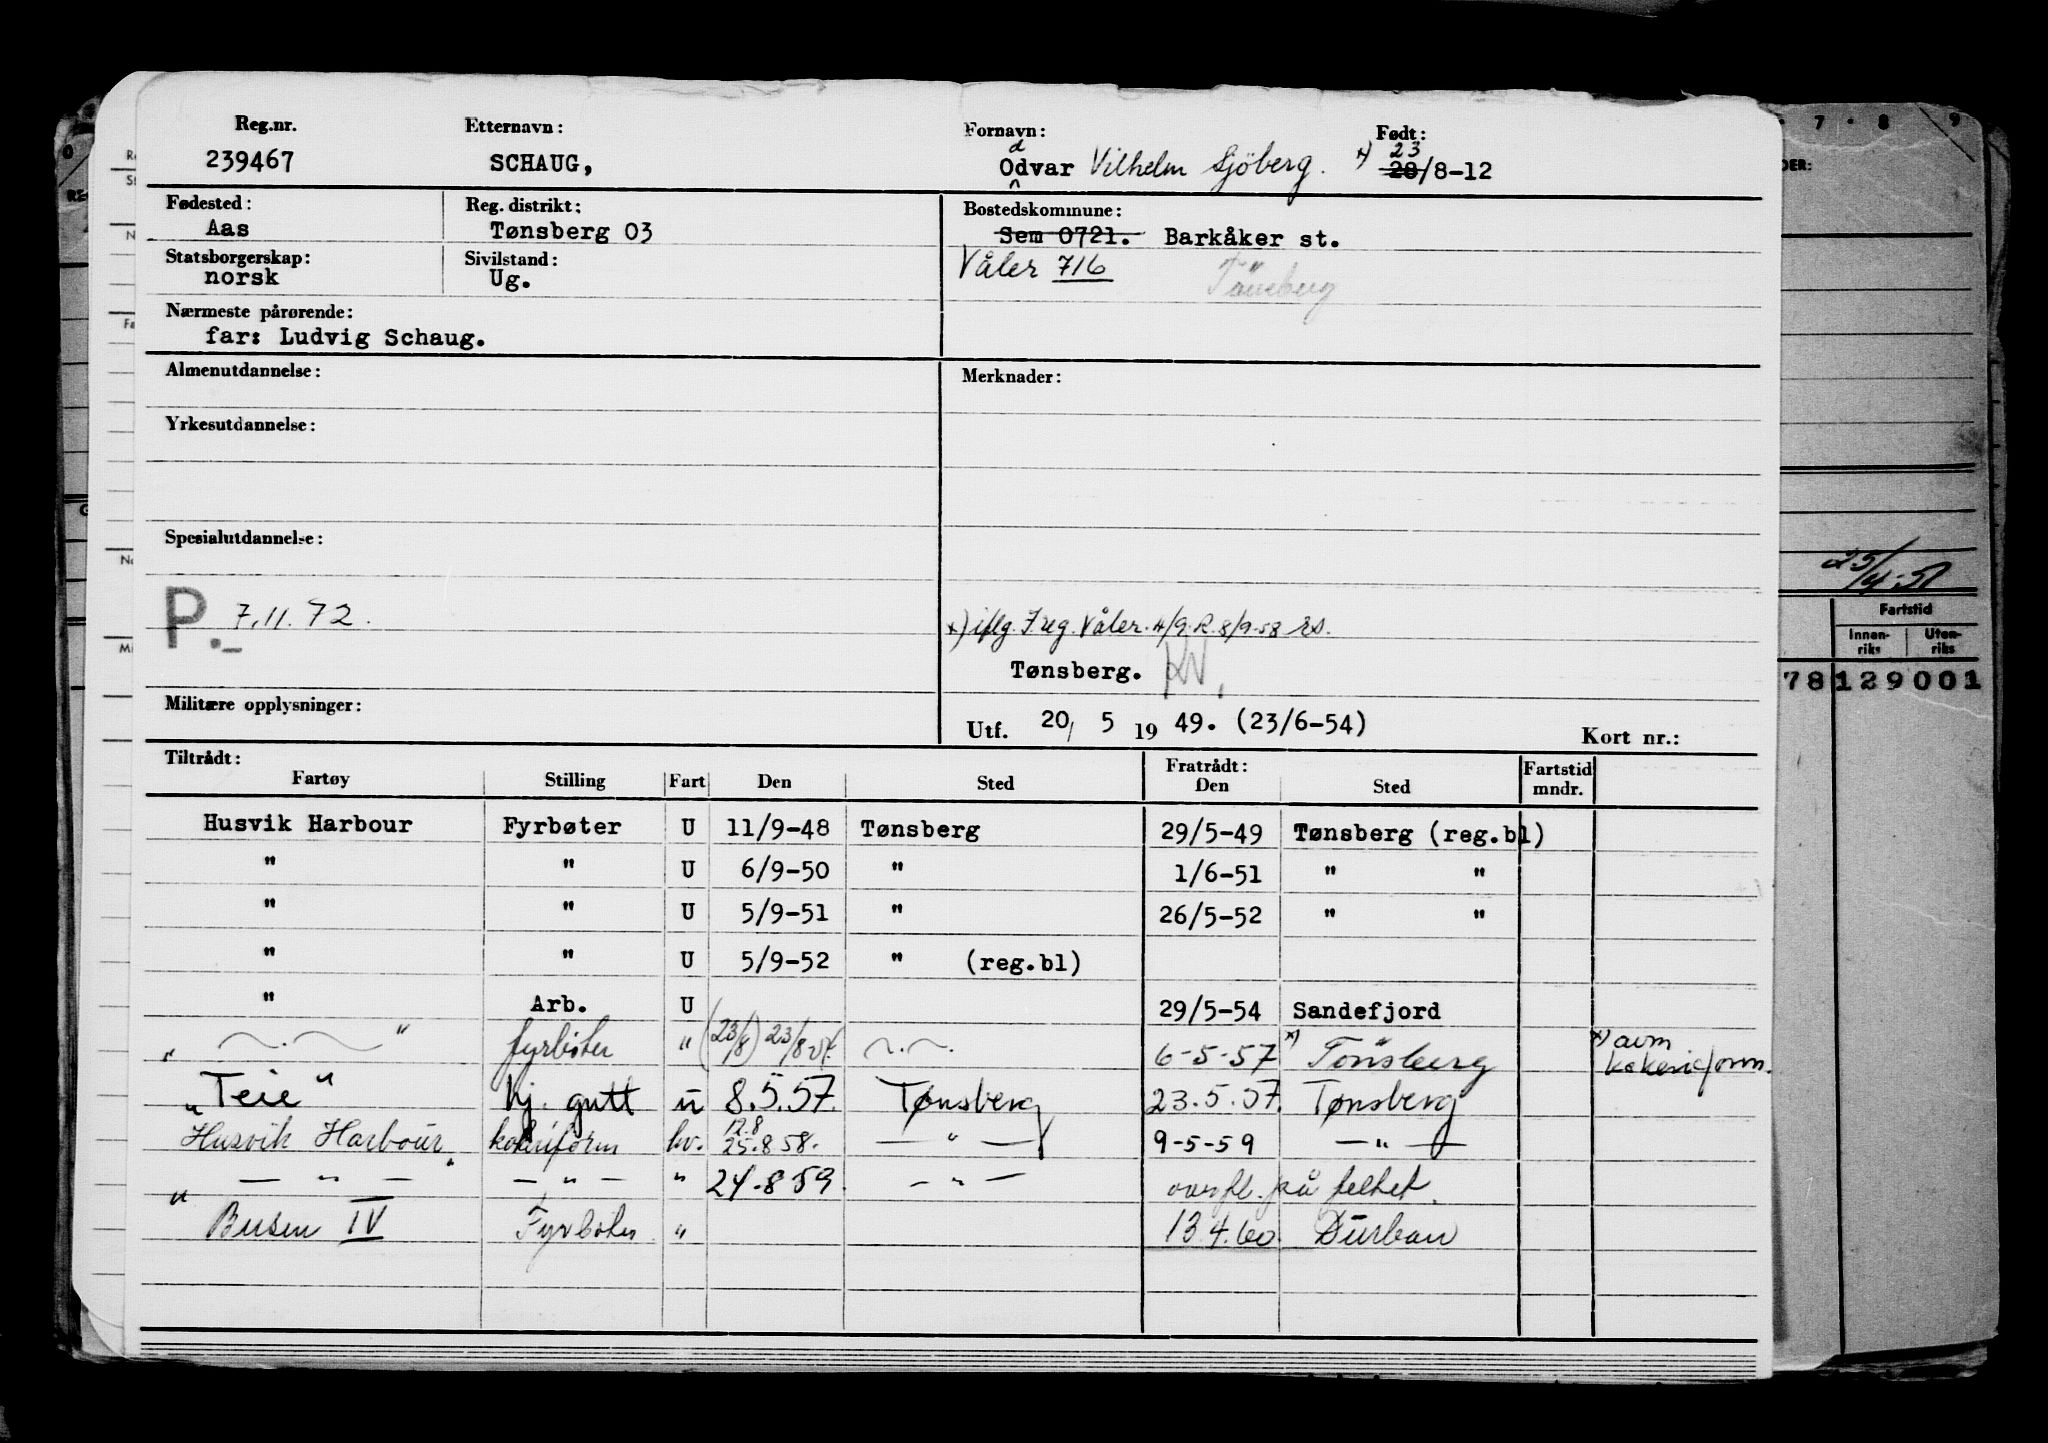 Reg.nr. Etternavn: Fornavn: Født:
239467 SCHAUG, Odvar Vilhelm Sjöberg. x) 23 28/8-12
d
Fødested: Reg. distrikt: Bostedskommune:
Aas Tønsberg 03 Sem 0721. Barkåker st.
Statsborgerskap: Sivilstand: Våler 716 Tönsberg
norsk Ug.
Nærmeste pårørende:
far: Ludvig Schaug.
Almenutdannelse: Merknader:
Yrkesutdannelse:
Spesialutdannelse:
P. 7.11.72.
x) iflg. Freg. Våler. 4/9. R. 8/9-58 rs.
Tønsberg.
Militære opplysninger: Utf. 20/ 5 19 49. (23/6-54) Kort nr.:
Tiltrådt: Fratrådt: Fartstid
Fartøy Stilling Fart Den Sted Den Sted mndr.
Husvik Harbour Fyrbøter U 11/9-48 Tønsberg 29/5-49 Tønsberg (reg.bl)
" " U 6/9-50 " 1/6-51 " "
" " U 5/9-51 " 26/5-52 " "
" " U 5/9-52 " (reg.bl)
" Arb. U 29/5-54 Sandefjord
" — . — " fyrböter " (23/8) 23/8 — . — . 6-5-57 x) Tönsberg x) avm
"Teie" hj. gutt u 8.5.57. Tønsberg 23.5.57. Tønsberg
Husvik Harbour. kokeriform hv. 12.8 25.8 58. — " — 9-5-59 — " —
— " — — " — " 24.8 59. — " — overfl. på feltet.
" Busen IV Fyrböter " 13.4.60. Durban
7 8 9
25/4-51
Fartstid
Innen-riks Uten-riks
78 129001